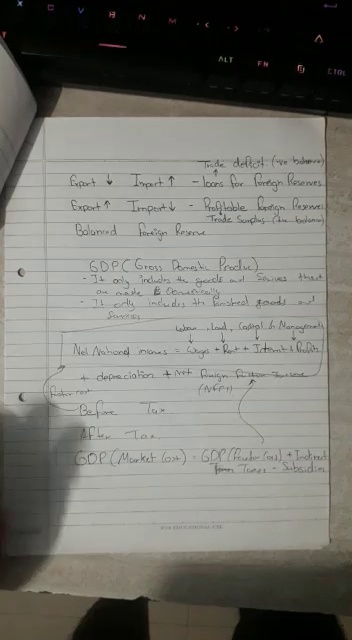 X C V B N M
ALT FN CTRL
Trade deficit (-ve balance)
Export ↓ Import ↑ - loans for Foreign Reserves
Export ↑ Import ↓ - Profitable Foreign Reserves
Trade Surplus (+ve balance)
Balanced Foreign Reserve
GDP (Gross Domestic Produc)
- It only includes the goods and
are made
- It only includes the finished goods and
Services
land, Capital & Management
Net National income = Wages + Rent + Interest + Profits
+ depreciation + Net Foreign
(NFPI)
Factor cost
Before Tax
After Tax
GDP (Market Cost) = GDP (Factor Cost) + Indirect
Taxes - Subsidies